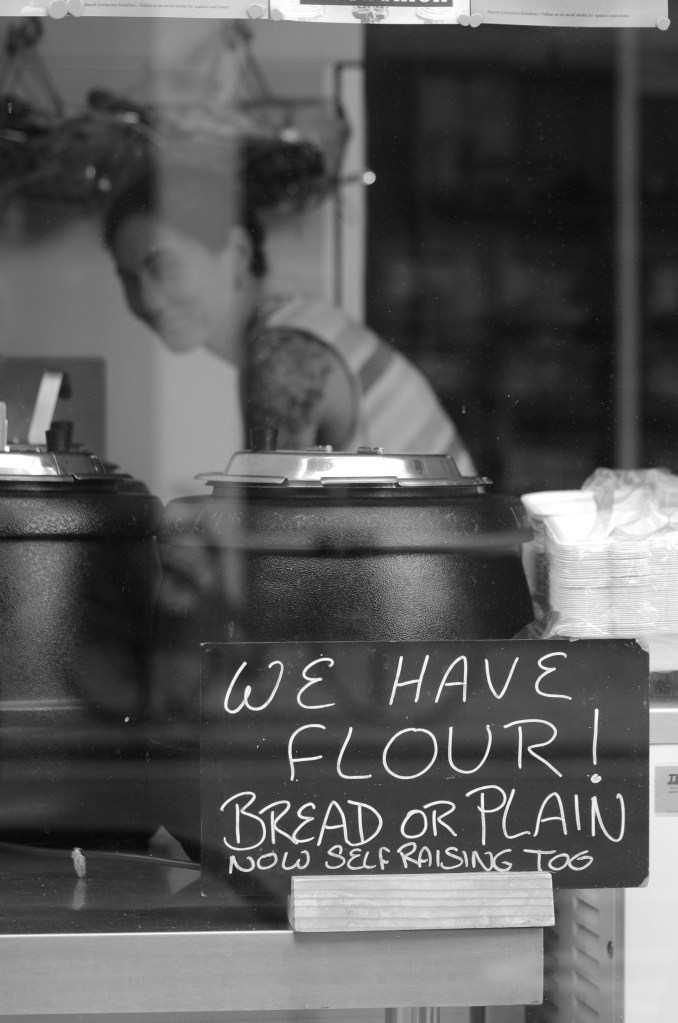 WE HAVE
FLOUR!
BREAD OR PLAIN
NOW SELF RAISING TOO